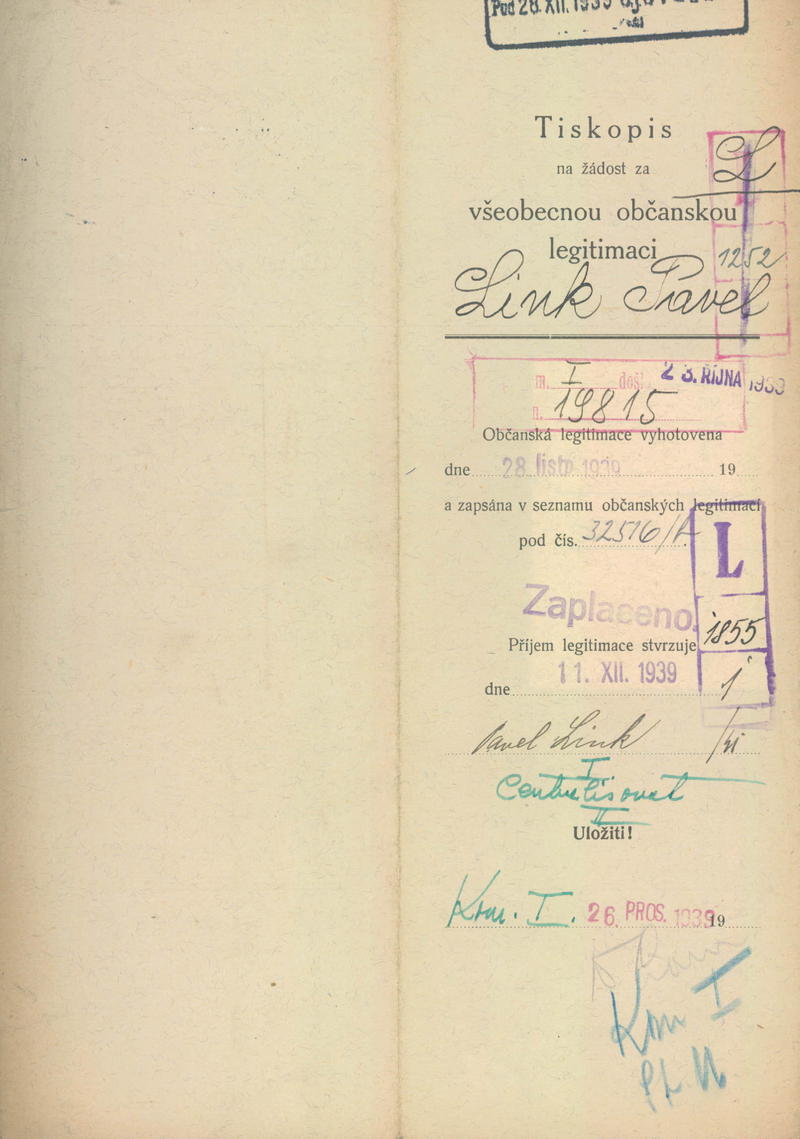 Pod 28. XII. 1939
Tiskopis
na žádost za
všeobecnou občanskou
legitimaci
L
1252
Link Pavel
m. I došl. 23. ŘÍJNA 1939
n. 19815
Občanská legitimace vyhotovena
dne 28 listo 1939 19
a zapsána v seznamu občanských legitimací
pod čís. 32516/A
L
Zaplaceno.
1855
Příjem legitimace stvrzuje
dne 11. XII. 1939
1
Pavel Link
I
Centralisovat
II
Uložiti!
Km. I. 26. PROS. 1939 19
Km I